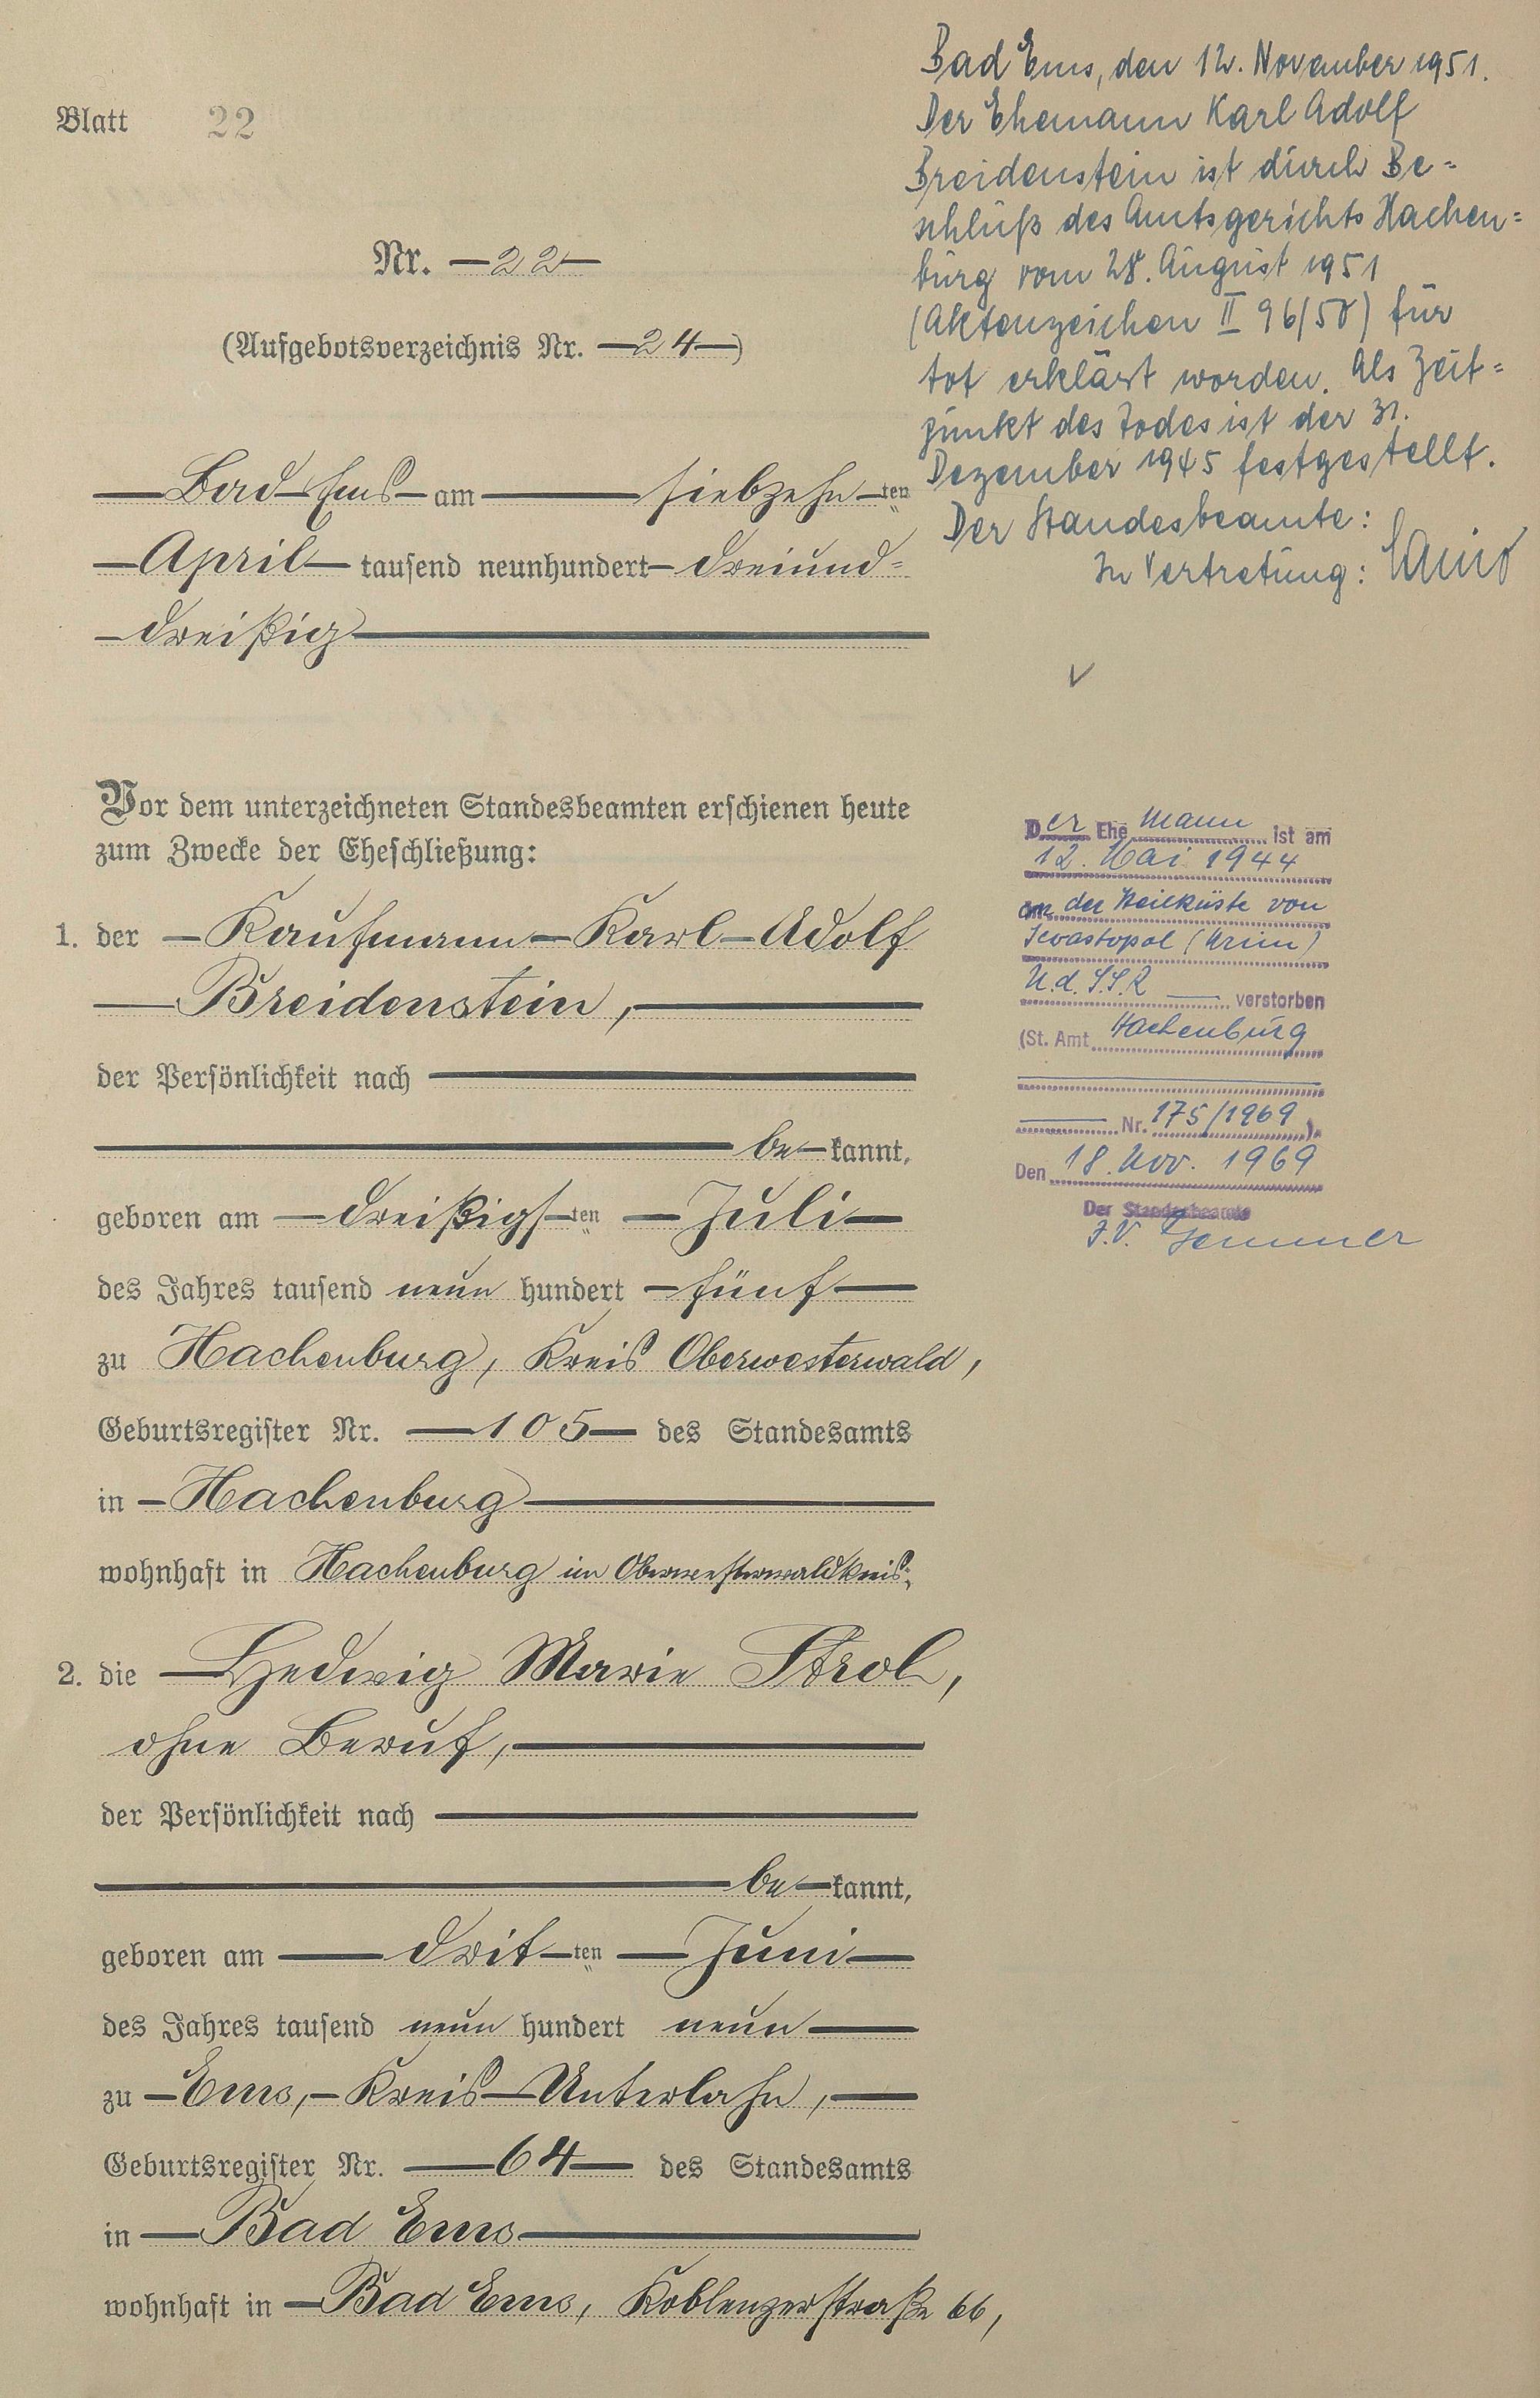 Blatt 22
Nr. 22
(Aufgebotsverzeichnis Nr. 24)
Bad Ems am siebzehnten
April tausend neunhundert dreiund=
dreißig
Vor dem unterzeichneten Standesbeamten erschienen heute
zum Zwecke der Eheschließung:
1. der Kaufmann Karl Adolf
Breidenstein,
der Persönlichkeit nach
be kannt,
geboren am dreißigsten Juli
des Jahres tausend neun hundert fünf
zu Hachenburg, Kreis Oberwesterwald,
Geburtsregister Nr. 105 des Standesamts
in Hachenburg
wohnhaft in Hachenburg im Oberwesterwaldkreis,
2. die Hedwig Marie Strol,
ohne Beruf,
der Persönlichkeit nach
be kannt,
geboren am dritten Juni
des Jahres tausend neun hundert neun
zu Ems, Kreis Unterlahn,
Geburtsregister Nr. 64 des Standesamts
in Bad Ems
wohnhaft in Bad Ems, Koblenzerstraße 66,
Bad Ems, den 12. November 1951.
Der Ehemann Karl Adolf
Breidenstein ist durch Be=
schluß des Amtsgerichts Hachen=
burg vom 28. August 1951
(Aktenzeichen II 96/50) für
tot erklärt worden. Als Zeit=
punkt des Todes ist der 31.
Dezember 1945 festgestellt.
Der Standesbeamte:
In Vertretung:
Der Ehe Mann ist am
12. Mai 1944
an der Steilküste von
Sewastopol (Krim)
U.d.S.S.R verstorben
(St. Amt Hachenburg
Nr. 175/1969).
Den 18. Nov. 1969
Der Standesbeamte
J.V.